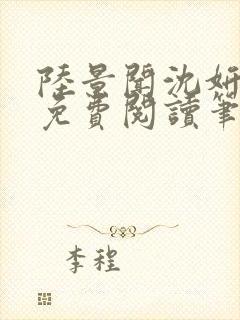 陸景聞沈妍
免費閱讀筆
李程